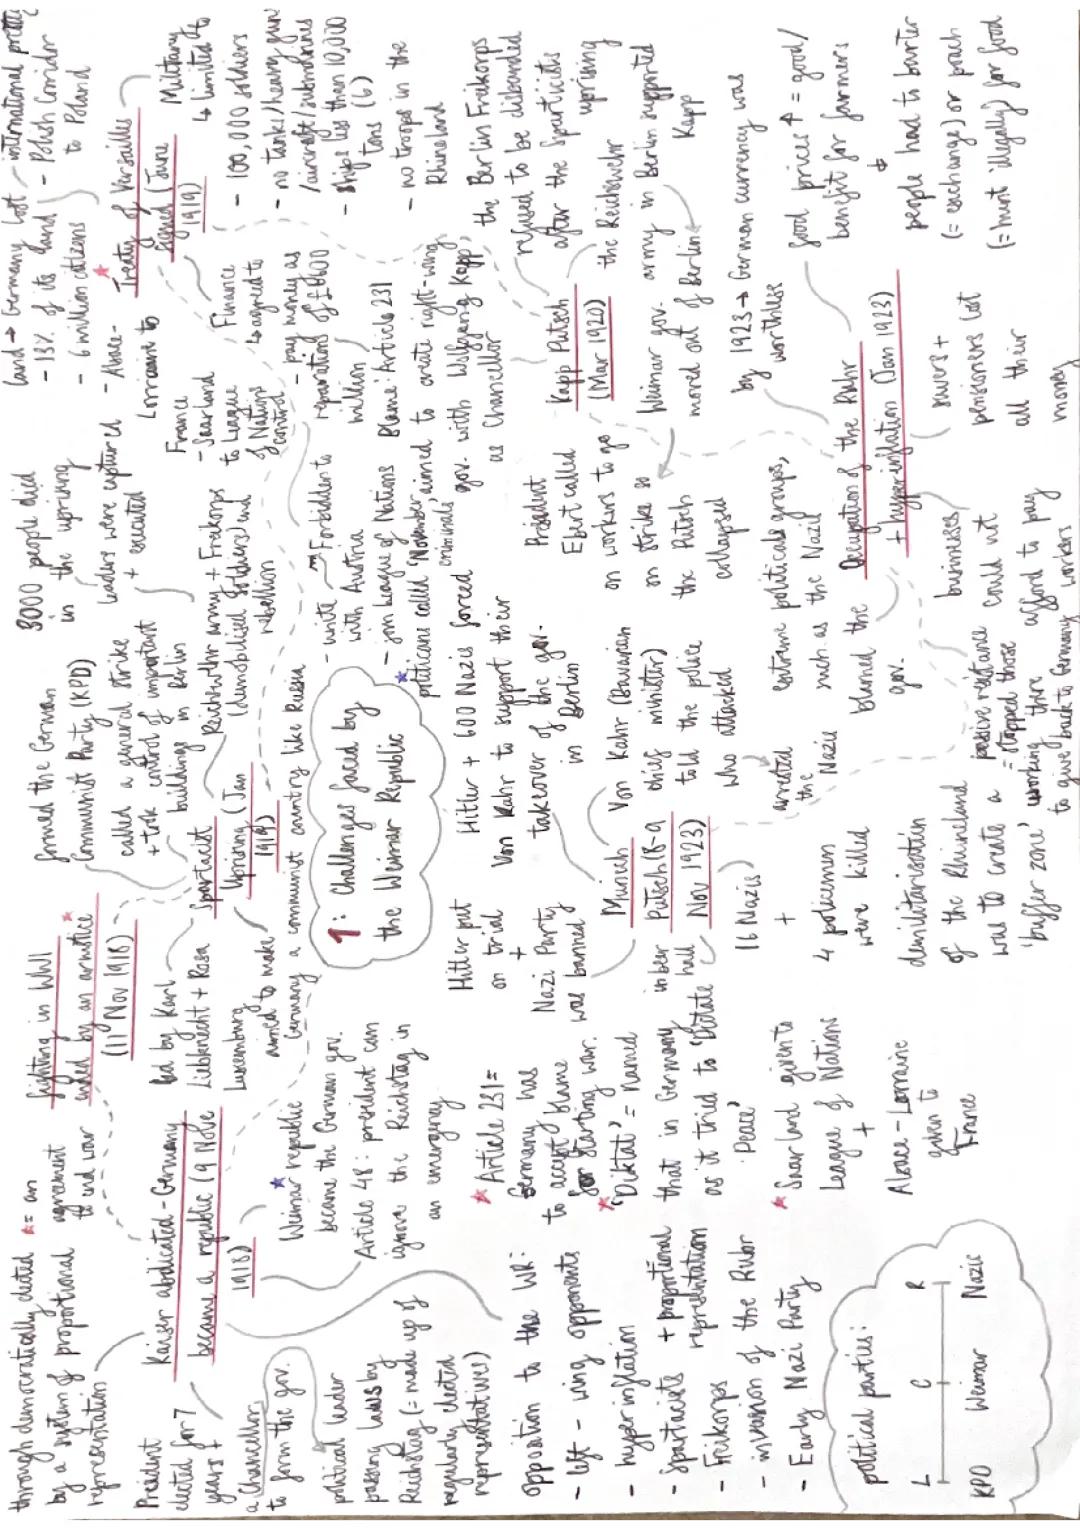 through democratically elected
by a system of proportional
representation
* = an
agreement
to end war
President
elected for 7
years +
a Chancellor
to form the gov.
political leader
passing laws by
Reichstag (= made up of
regularly elected
representatives)
Kaiser abdicated - Germany
became a republic (9 Nov
1918)
* Weimar republic
became the German gov.
Article 48: president can
ignore the Reichstag in
an emergency
fighting in WWI
ended by an armistice *
(11 Nov 1918)
led by Karl
Liebknecht + Rosa
Luxemburg
aimed to make
Germany a communist country like Russia
Spartacist
Uprising (Jan
1919)
formed the German
Communist Party (KPD)
called a general strike
+ took control of important
buildings in Berlin
3000 people died
in the uprising
leaders were captured
+ executed
Reichswehr army + Freikorps
(demobilised soldiers) end
rebellion
land → Germany lost
- 13% of its land
- 6 million citizens
- Polish Corridor
to Poland
- Alsace-
Lorraine to
France
- Saarland
to League
of Nations
control
* Treaty of Versailles
signed (June
1919)
Military
↳ limited to
- 100,000 soldiers
- no tanks/heavy guns
/aircraft/submarines
- ships less than 10,000
tons (6)
- no troops in the
Rhineland
Finance
↳ agreed to
- pay money as
reparations of £6600
million
Blame: Article 231
- unite
with Austria
Forbidden to
- join League of Nations
1: Challenges faced by
the Weimar Republic
* politicians called 'November
criminals'
aimed to create right-wing
gov. with Wolfgang Kapp
as Chancellor
Kapp Putsch
(Mar 1920)
the Berlin Freikorps
refused to be disbanded
after the Spartacists
uprising
the Reichswehr
army in Berlin supported
Kapp
Weimar gov.
moved out of Berlin
President
Ebert called
on workers to go
on strike so
the Putsch
collapsed
Hitler + 600 Nazis forced
Von Kahr to support their
takeover of the gov.
in Berlin
Hitler put
on trial
+
Nazi Party
was banned
Munich
Putsch (8-9
Nov 1923)
in beer
hall
Von Kahr (Bavarian
chief minister)
told the police
who attacked
arrested
the Nazis
16 Nazis
+
4 policemen
were killed
* Article 231 =
Germany has
to accept blame
for starting war.
* 'Diktat' = named
that in Germany
as it tried to 'Dictate
Peace'
* Saar land given to
League of Nations
+
Alsace-Lorraine
given to
France
demilitarisation
of the Rhineland
was to create a
'buffer zone'
opposition to the WR:
- left-wing opponents
- hyperinflation
- Spartacists + proportional
representation
- Freikorps
- invasion of the Ruhr
- Early Nazi Party
political parties:
L C R
KPD Weimar Nazis
Occupation of the Ruhr
+ hyperinflation (Jan 1923)
by 1923 → German currency was
worthless
food prices ↑ = good/
benefit for farmers
people had to barter
(= exchange) or poach
(= hunt illegally) for food
savers +
pensioners lost
all their
money
businesses
could not
afford to pay
workers
extreme political groups,
such as the Nazis
blamed the
gov.
passive resistance
= stopped those
working there
to give back to Germany